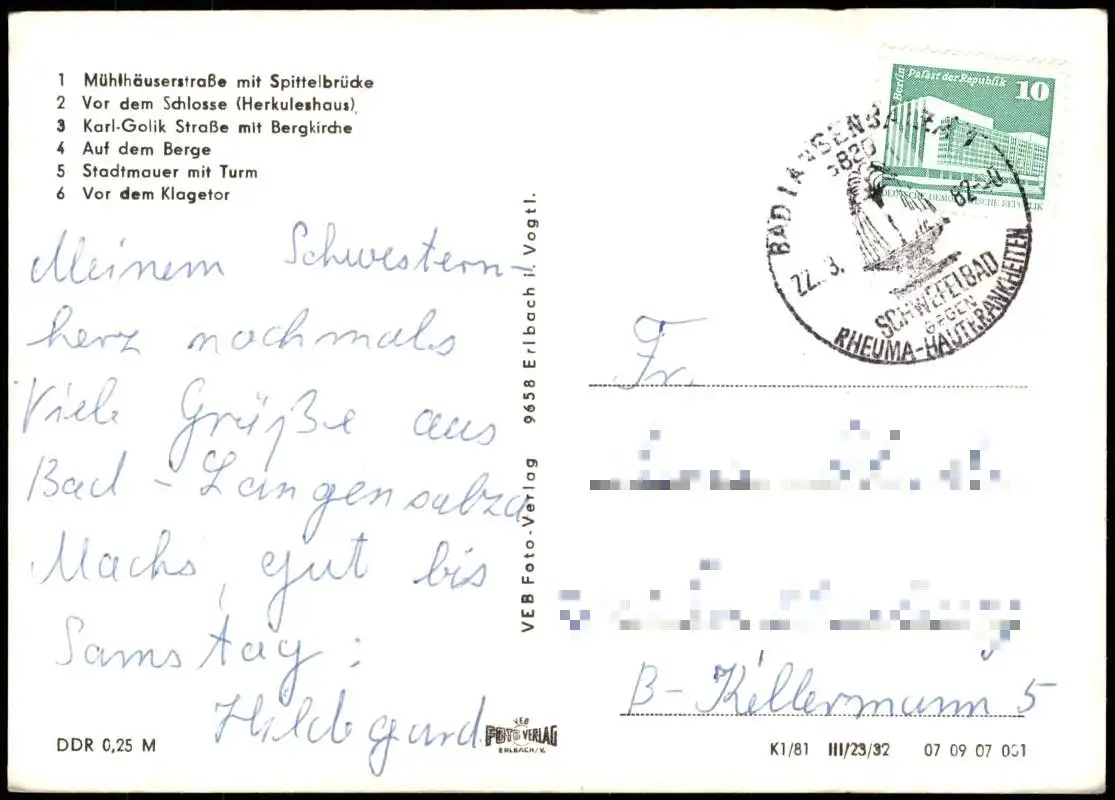 1 Mühlhäuserstraße mit Spittelbrücke
2 Vor dem Schlosse (Herkuleshaus)
3 Karl-Golik Straße mit Bergkirche
4 Auf dem Berge
5 Stadtmauer mit Turm
6 Vor dem Klagetor
Meinem Schwestern-
herz nochmals
Viele Grüße aus
Bad-Langensalza
Machs gut bis
Samstag:
Hildegard
DDR 0,25 M
VEB Foto-Verlag 9658 Erlbach i. Vogtl.
VEB
FOTO VERLAG
ERLBACH/V.
Berlin Palast der Republik 10
DEUTSCHE DEMOKRATISCHE REPUBLIK
BAD LANGENSALZA 1
5820
22.-3. 82-
SCHWEFELBAD
GEGEN
RHEUMA-HAUTKRANKHEITEN
Fr.
B-Killermann 5
K1/81 III/23/32 07 09 07 001